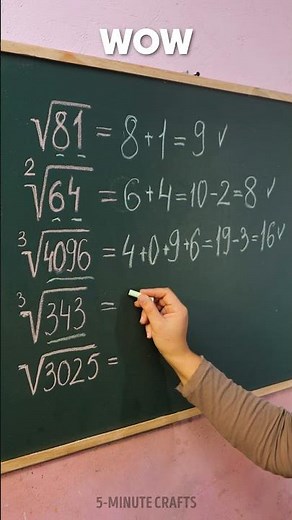 WOW
√81 = 8+1=9 ✓
²√64 = 6+4=10-2=8 ✓
³√4096 = 4+0+9+6=19-3=16 ✓
³√343 =
√3025 =
5-MINUTE CRAFTS